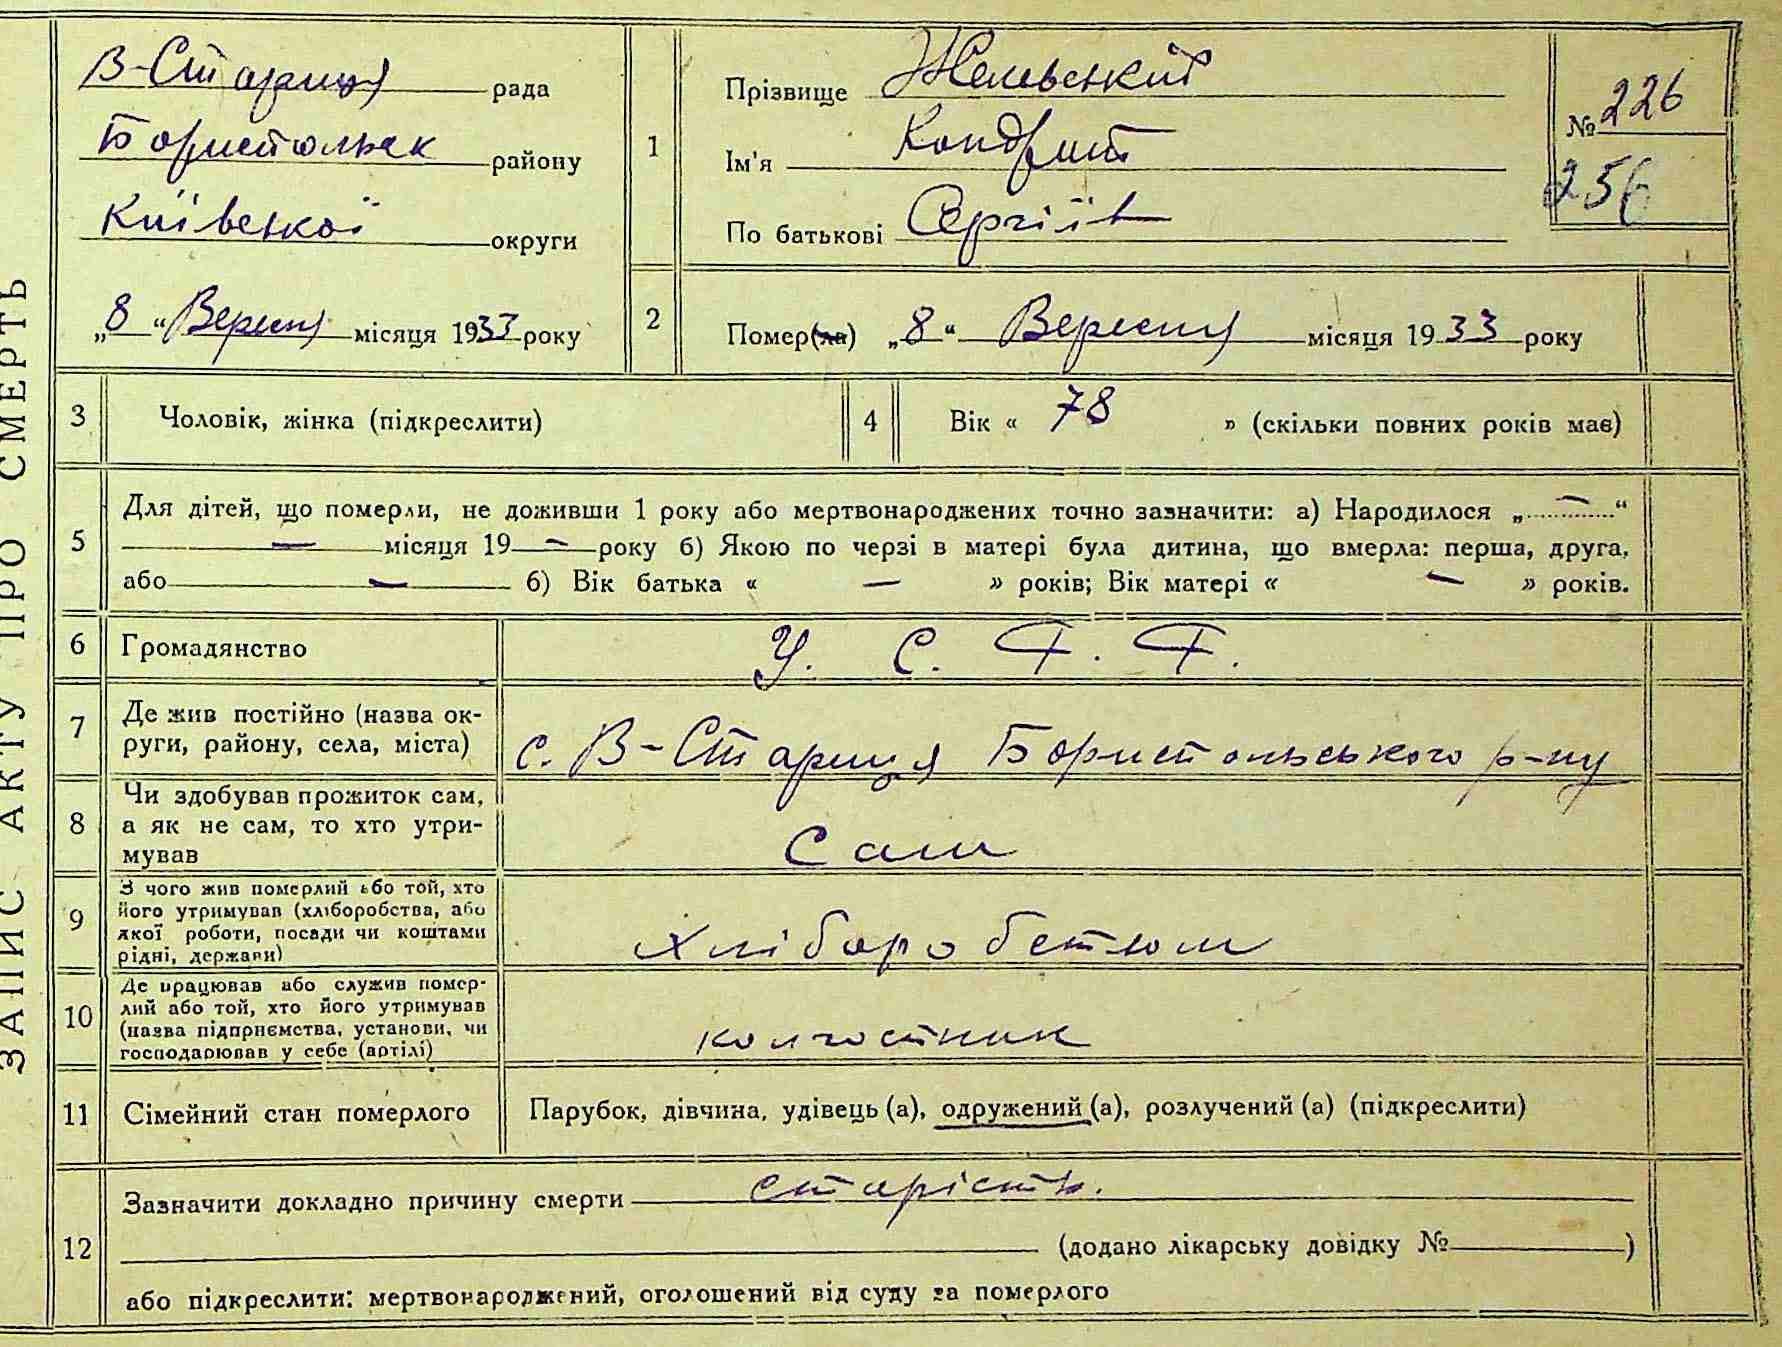 ЗАПИС АКТУ ПРО СМЕРТЬ
В-Стариця рада
Бориспольск району
Київської округи
„8“ Вересня місяця 1933 року
1
Прізвище
Ім'я Кондрат
По батькові Сергіїв
№ 226
256
2
Помер(ла) „8“ Вересня місяця 1933 року
3 Чоловік, жінка (підкреслити)
4 Вік « 78 » (скільки повних років має)
5
Для дітей, що померли, не доживши 1 року або мертвонароджених точно зазначити: а) Народилося „ — “
— місяця 19 — року б) Якою по черзі в матері була дитина, що вмерла: перша, друга,
або — б) Вік батька « — » років; Вік матері « — » років.
6 Громадянство У. С. Р. Р.
7
Де жив постійно (назва ок-
руги, району, села, міста)
с. В-Стариця Бориспольського р-ну
8
Чи здобував прожиток сам,
а як не сам, то хто утри-
мував
Сам
9
З чого жив померлий або той, хто
його утримував (хліборобства, або
якої роботи, посади чи коштами
рідні, держави)
хліборобством
10
Де працював або служив помер-
лий або той, хто його утримував
(назва підприємства, установи, чи
господарював у себе (артілі)
колгостник
11 Сімейний стан померлого Парубок, дівчина, удівець (а), одружений (а), розлучений (а) (підкреслити)
12
Зазначити докладно причину смерти старість.
(додано лікарську довідку № )
або підкреслити: мертвонароджений, оголошений від суду за померлого